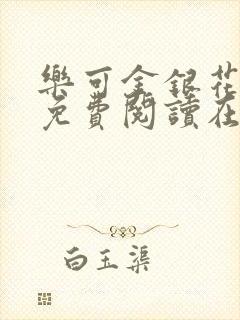 樂可金銀花
免費閱讀在
白玉渠